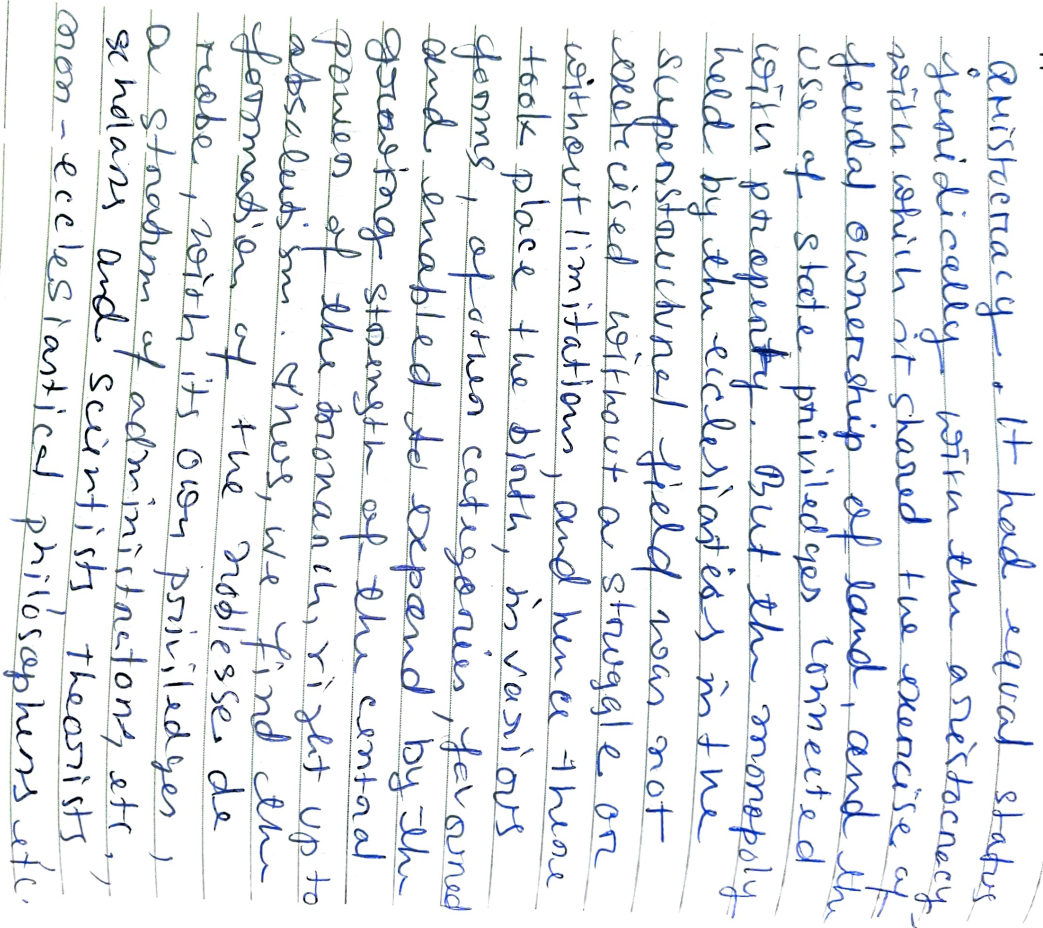 aristocracy. It had equal status
juridically with the aristocracy,
with which it shared the exercise of
feudal ownership of land, and the
use of state priviledges connected
with property. But the monopoly
held by the ecclesiastics in the
superstructural field was not
exercised without a struggle or
without limitations, and hence there
took place the birth, in various
forms, of other categories, favoured
and enabled to expand by the
growing strength of the central
power of the monarch, right up to
absolutism. Thus, we find the
formation of the noblesse de
robe, with its own priviledges,
a stratum of administrators, etc,
scholars and scientists theorists,
non-ecclesiastical philosophers etc.